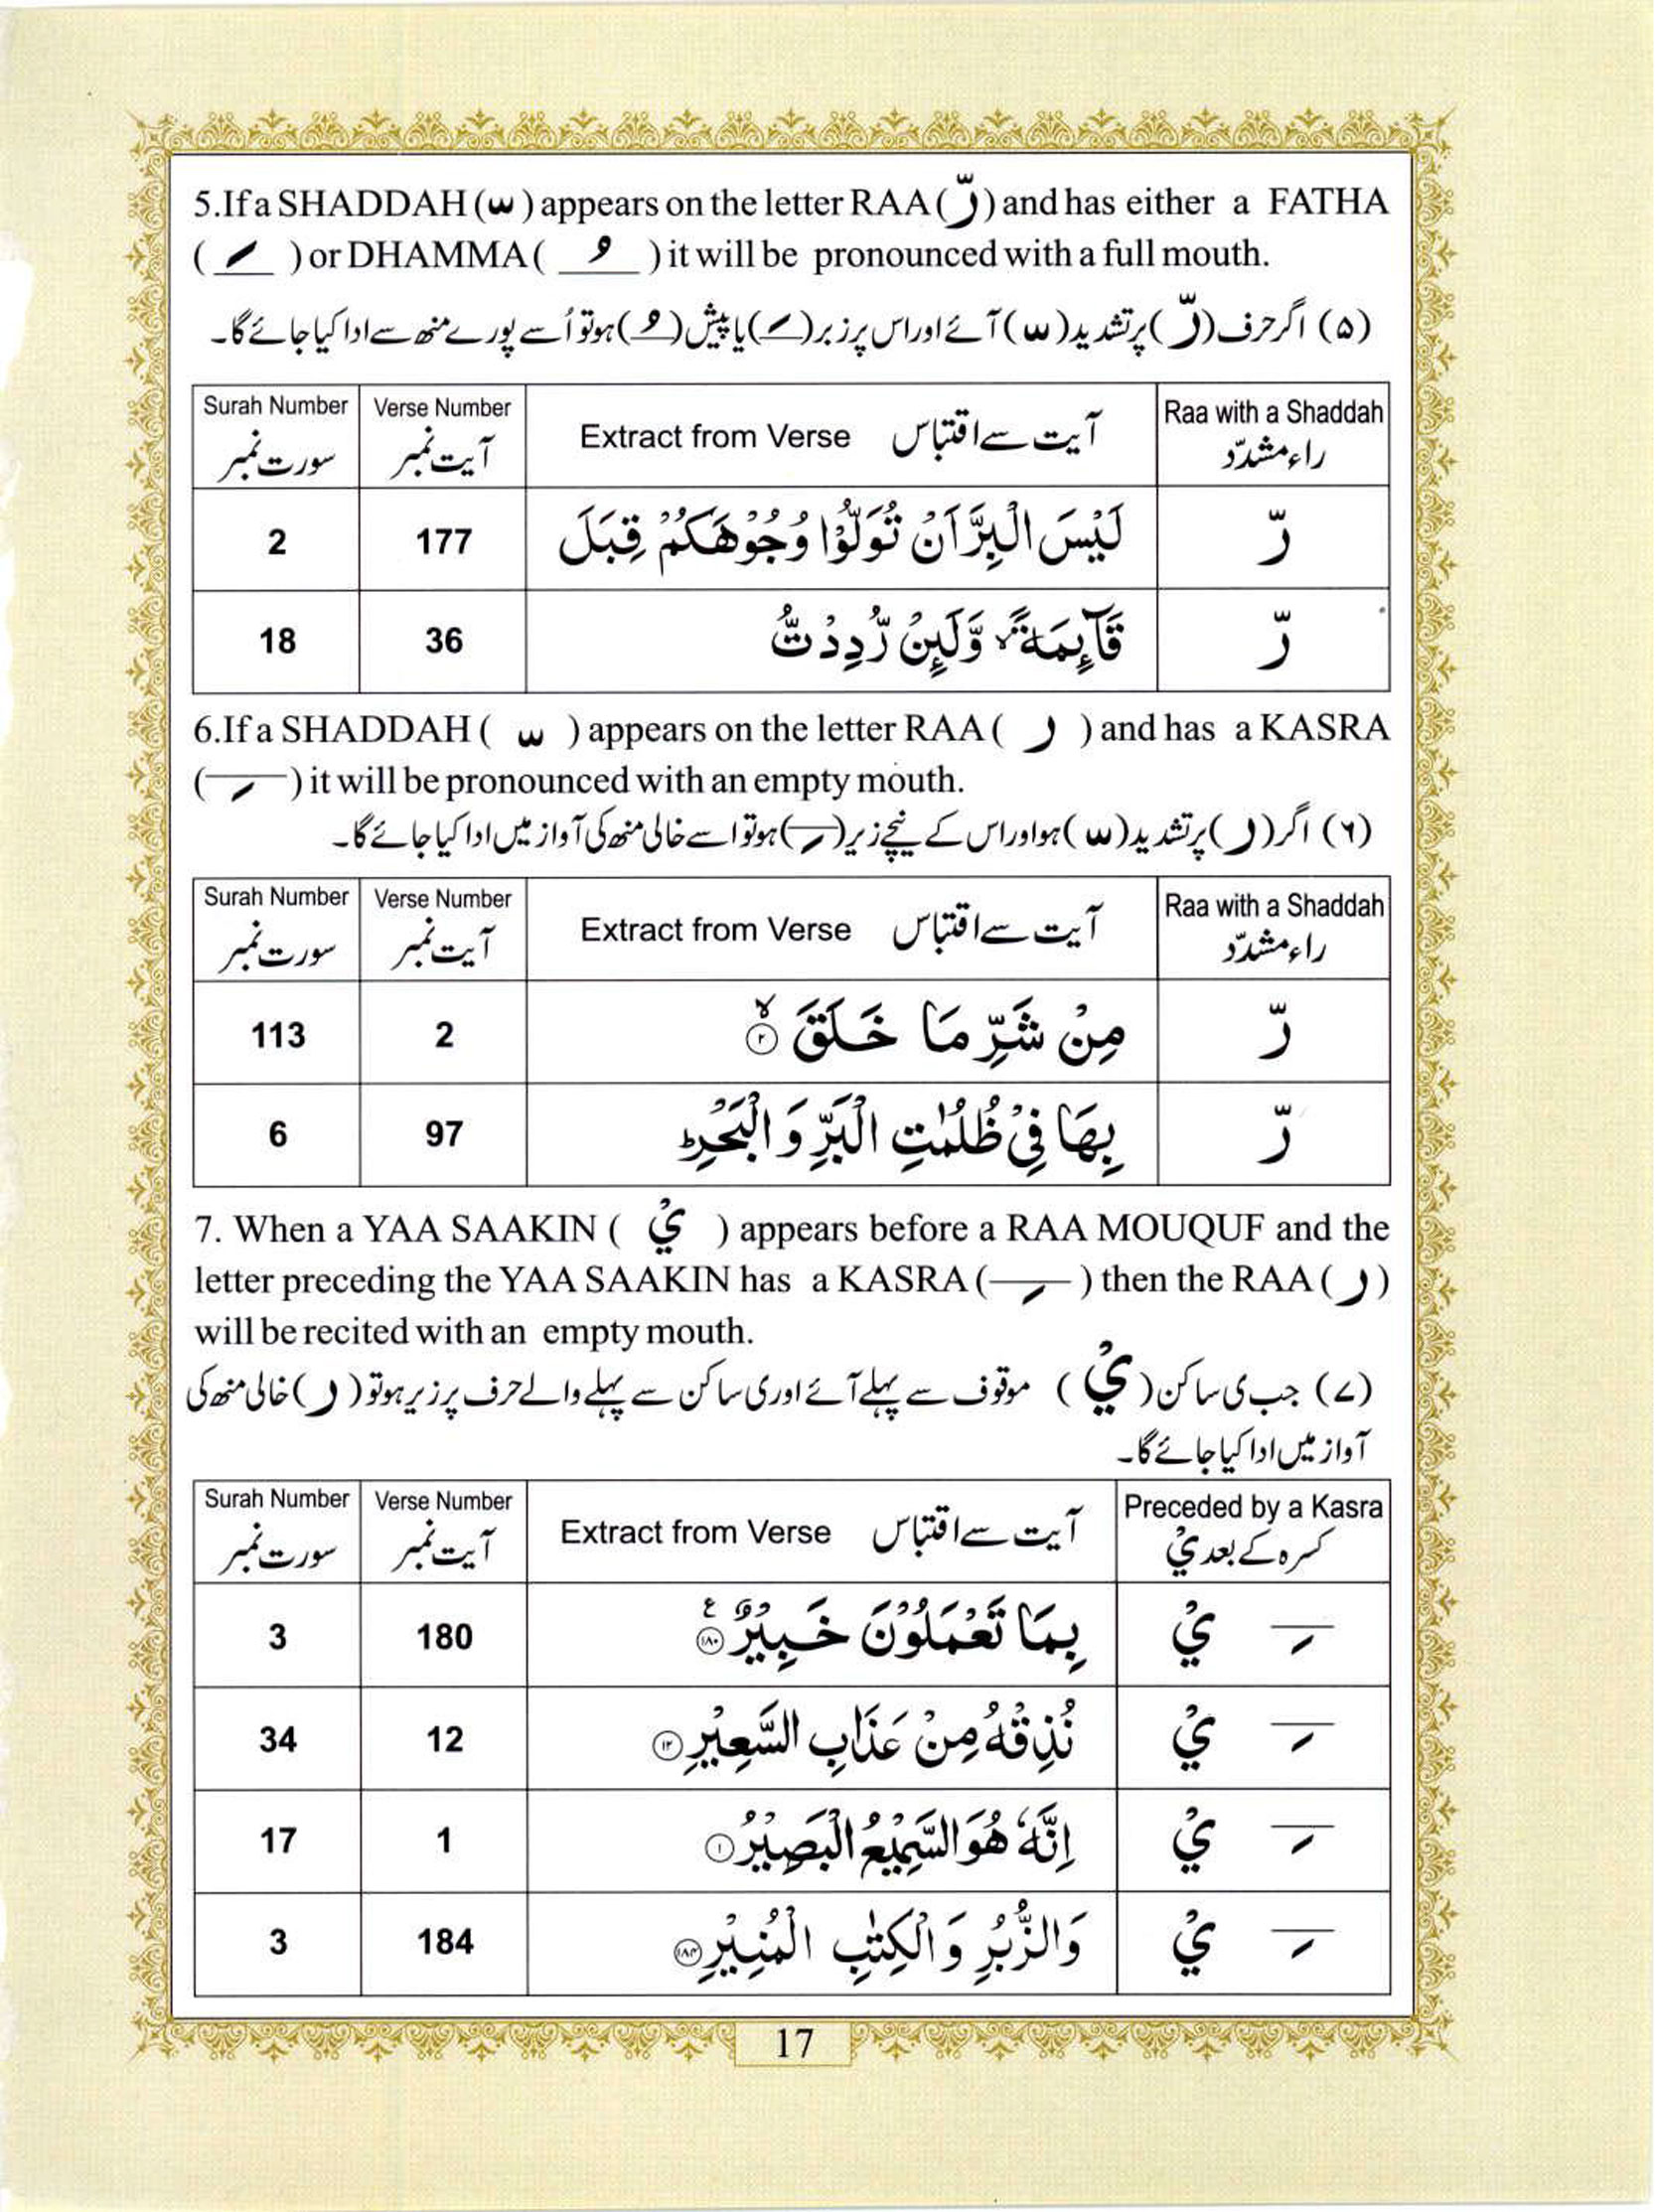 5.If a SHADDAH ( ّ ) appears on the letter RAA ( رّ ) and has either a FATHA
( َ ) or DHAMMA ( ُ ) it will be pronounced with a full mouth.
(۵) اگر حرف ( رّ ) پر تشدید ( ّ ) آئے اور اس پر زبر ( َ ) یا پیش ( ُ ) ہو تو اُسے پورے منھ سے ادا کیا جائے گا۔
Surah Number Verse Number Extract from Verse آیت سے اقتباس Raa with a Shaddah
سورت نمبر آیت نمبر راء مشدّد
2 177 لَيْسَ الْبِرَّ اَنْ تُوَلُّوْا وُجُوْهَكُمْ قِبَلَ رّ
18 36 قَآئِمَةً ۙ وَّلَئِنْ رُّدِدْتُّ رّ
6.If a SHADDAH ( ّ ) appears on the letter RAA ( ر ) and has a KASRA
( ِ ) it will be pronounced with an empty mouth.
(۶) اگر ( ر ) پر تشدید ( ّ ) ہو اور اس کے نیچے زیر ( ِ ) ہو تو اسے خالی منھ کی آواز میں ادا کیا جائے گا۔
Surah Number Verse Number Extract from Verse آیت سے اقتباس Raa with a Shaddah
سورت نمبر آیت نمبر راء مشدّد
113 2 مِنْ شَرِّ مَا خَلَقَ ۙ۝۲ رّ
6 97 بِهَا فِيْ ظُلُمٰتِ الْبَرِّ وَ الْبَحْرِ ؕ رّ
7. When a YAA SAAKIN ( يْ ) appears before a RAA MOUQUF and the
letter preceding the YAA SAAKIN has a KASRA ( ِ ) then the RAA ( ر )
will be recited with an empty mouth.
(۷) جب ی ساکن ( يْ ) موقوف سے پہلے آئے اور ی ساکن سے پہلے والے حرف پر زیر ہو تو ( ر ) خالی منھ کی
آواز میں ادا کیا جائے گا۔
Surah Number Verse Number Extract from Verse آیت سے اقتباس Preceded by a Kasra
سورت نمبر آیت نمبر کسرہ کے بعد يْ
3 180 بِمَا تَعْمَلُوْنَ خَبِيْرٌ ۝۱۸۰ ع يْ ِ
34 12 نُذِقْهُ مِنْ عَذَابِ السَّعِيْرِ ۝۱۲ يْ ِ
17 1 اِنَّهٗ هُوَ السَّمِيْعُ الْبَصِيْرُ ۝۱ يْ ِ
3 184 وَالزُّبُرِ وَ الْكِتٰبِ الْمُنِيْرِ ۝۱۸۴ يْ ِ
17